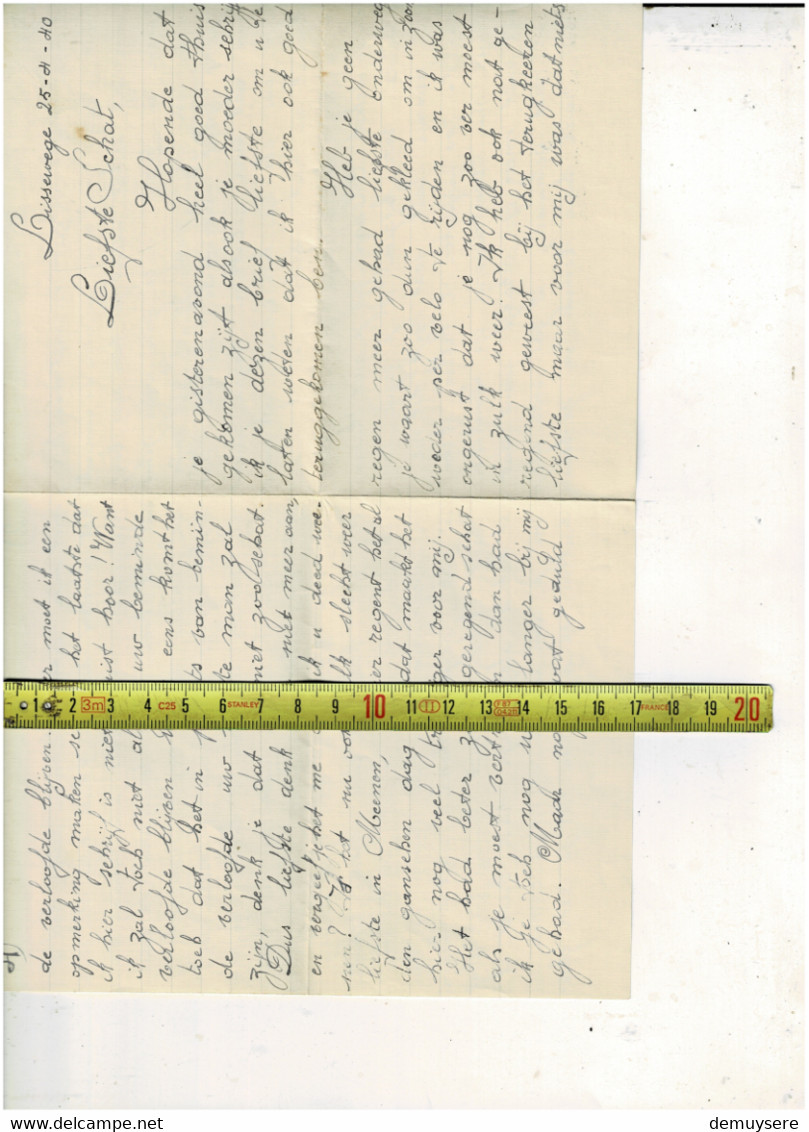 Lissewege 25-4-40
Liefste Schat,
Hopende dat
je gisterenavond heel goed thuis
gekomen zijt alsook je moeder schrijf
ik je dezen brief liefste om u te
laten weten dat ik hier ook goed
teruggekomen ben.
Heb je geen
regen meer gehad liefste onderweg
je waart zoo dun gekleed om in zoo
weder per velo te rijden en ik was
ongerust dat je nog zoo ver moest
in zulk weer. Ik heb ook nat ge-
regend geweest bij het terugkeeren
liefste maar voor mij was dat niets
4)
de verloofde blijven. er moet ik een
opmerking maken se het laatste dat
ik hier schrijf is niet juist hoor! Want
ik zal toch niet al uw beminde
verloofde blijven eens komt het
toch dat het in p ts van bemin-
de verloofde uw te man zal
zijn, denk je dat niet zoo schat.
Dus liefste denk niet meer aan,
en vergeef het me ik u deed wee-
nen? Is het nu ook lk slecht weer
liefste in Meenen, ier regent het al
den ganschen dag dat maakt het
hier nog veel tr iger voor mij.
Het had beter ge geregend schat
als je moest vert n dan had
ik je toch nog langer bij mij
gehad. Maar no wat geduld
1 2 3m 3 4 C25 5 6 STANLEY 7 8 9 10 11 12 13 14 15 16 17 FRANCE 18 19 20
demuysere